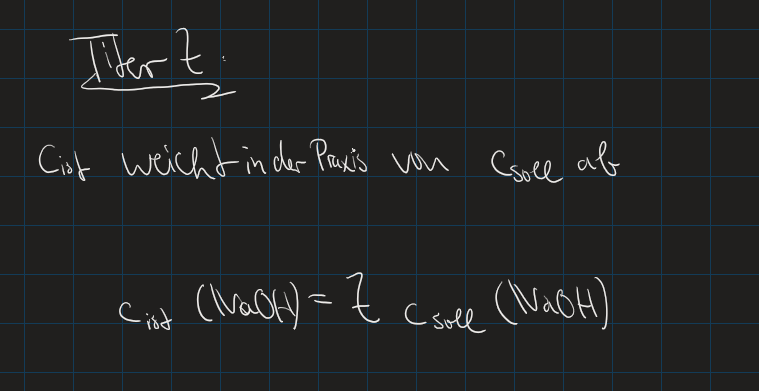 Titer t:
c_ist weicht in der Praxis von c_soll ab
c_ist (NaOH) = t c_soll (NaOH)